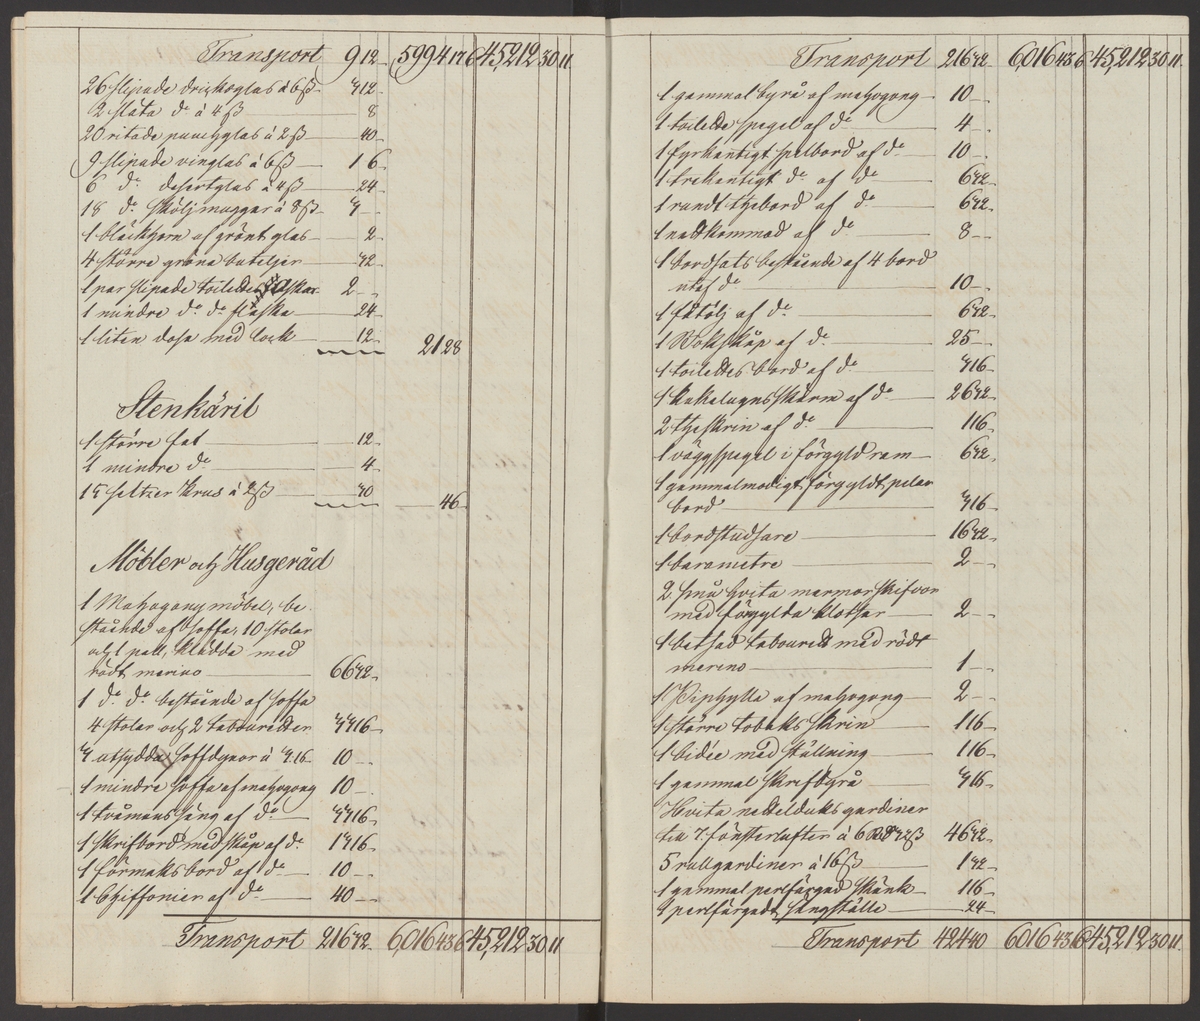 Transport 9 12 5994 17 6 45,212 30 11
26 slipade dricksglas à 6ß 3 12
2 släta do à 4ß 8
20 ritade punchglas à 2ß 40
9 slipade vinglas à 6ß 1 6
6 do desertglas à 4ß 24
18 do sköljmuggar à 8ß 3
1 bläckhorn af grönt glas 2
4 större gröna buteljer 32
1 par slipade toilette flaskor 2
1 mindre do do flaska 24
1 liten dosa med lock 12 21 28
Stenkäril
1 större fat 12
1 mindre do 4
15 seltzer krus à 2ß 30 46
Möbler och Husgeråd
1 Mahogany möbel, be-
stående af soffa, 10 stolar
och 1 pall, klädda med
rödt merino 66 32
1 do do bestående af soffa
4 stolar och 2 tabouretter 33 16
3 utsydda soffdynor à 3.16 10
1 mindre soffa af mahogony 10
1 tvåmanssäng af do 33 16
1 skrifbord med skåp af do 13 16
1 förmaksbord af do 10
1 Chiffonier af do 40
Transport 216 32 6,016 43 6 45,212 30 11
Transport 216 32 6,016 43 6 45,212 30 11
1 gammal byrå af mahogony 10
1 toilette spegel af do 4
1 fyrkantigt spelbord af do 10
1 trekantigt do af do 6 32
1 rundt thebord af do 6 32
1 nattkommod af do 8
1 bordsats bestående af 4 bord
utaf do 10
1 fåtölj af do 6 32
1 Bokskåp af do 25
1 toilettes bord af do 3 16
1 kakelugnsskärm af do 26 32
2 theskrin af do 1 16
1 väggspegel i förgyld ram 6 32
1 gammalmodigt förgyldt pelar
bord 3 16
1 bordstudsare 16 32
1 barometre 2
2 små hvita marmorskifvor
med förgylda klotsar 2
1 betsad tabourett med rödt
merino 1
1 Piphylla af mahogony 2
1 större tobaksskrin 1 16
1 bidée med ställning 1 16
1 gammal skrifbyrå 3 16
Hvita nettelduks gardiner
till 7 fönsterlufter à 6 Rd 32ß 46 32
5 rullgardiner à 16ß 1 32
1 gammal perlfärgad skänk 1 16
1 perlfärgadt sängställe 24
Transport 424 40 6016 43 6 45,212 30 11